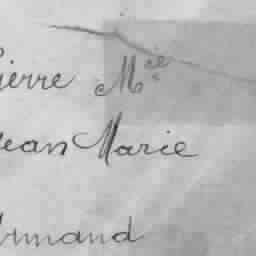 Pierre Mie
Jean Marie
Armand